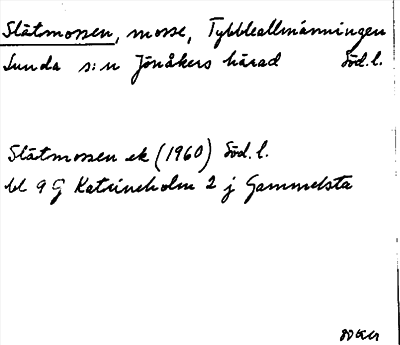 Slätmossen, mosse, Tybbleallmänningen
Lunda s:n Jönåkers härad Söd. l.
Slätmossen ek (1960) Söd. l.
bl 9 G Katrineholm 2 j Gammelsta